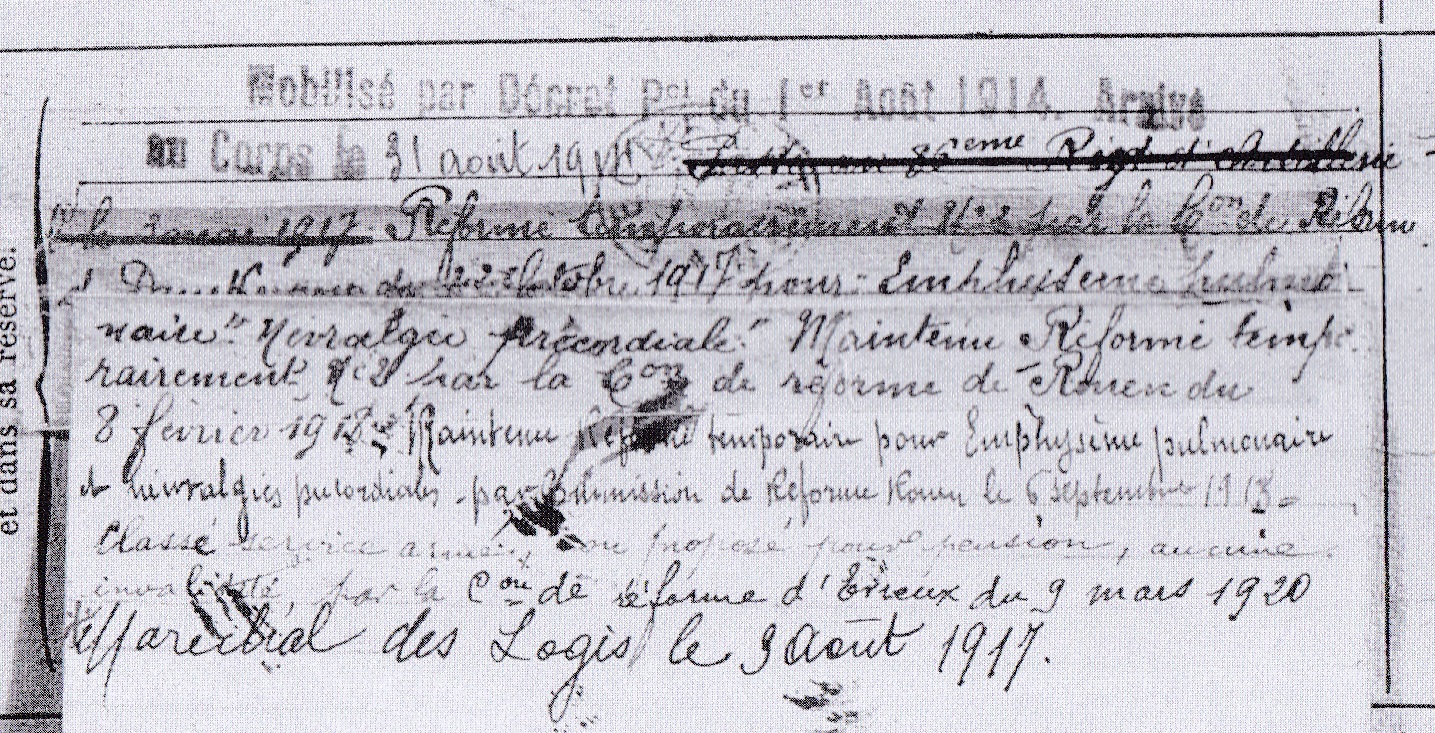 et dans sa réserve.
Mobilisé par Décret Pel du 1er Août 1914. Arrivé
au Corps le 31 août 1914 Passé au 86eme Rigt d'Artillerie
le 2 mai 1917. Réformé temporairement N°2 par la Con de Réform
Dunkerque du 22 Octobre 1917 pour "Emphysème pulmo
naire" "Névralgie précordiale." Maintenu Réformé tempo
rairement N°2 par la Con de réforme de Rouen du
8 février 1918. Maintenu Réformé temporaire pour Emphysème pulmonaire
et névralgies précordiales par Commission de Réforme Rouen le 6 septembre 1918 =
Classé service armé, non proposé pour pension, aucune
invalidité, par la Con de réforme d'Evreux du 9 mars 1920
Marechal des Logis le 9 Août 1917.